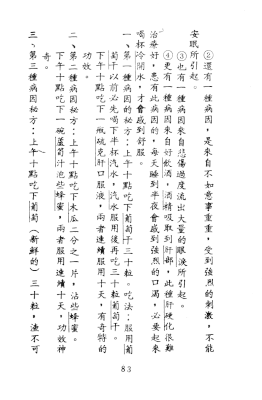 ②還有一種病因，是來自不如意事重重，受到強烈的刺激，不能
安眠所引起。
③也有一種病因來自悲傷過度流出大量的眼淚所引起。
④更有一種病因來自好飲酒，酒精吸取到肝部，此種肝硬化很難
治療好，患有此病的，每天睡到半夜會感到強烈的口渴，必要起來
喝杯冷開水，才會感到舒服。
一、第一種病因的秘方：上午十點吃下葡萄干三十粒。吃法：服用葡
萄干以前必先喝下半杯汽水，汽水服用後再吃三十粒葡萄干。
下午十點吃下一瓶硫克肝口服液，兩者連續服用十天，有奇特的
功效。
二、第二種病因秘方：上午十點吃下木瓜二分之一片，沾些蜂蜜，
下午十點吃下一碗蘿蔔汁泡些蜂蜜，兩者服用連續十天，功效神
奇。
三、第三種病因秘方：上午十點吃下葡萄（新鮮的）三十粒，渣不可
83